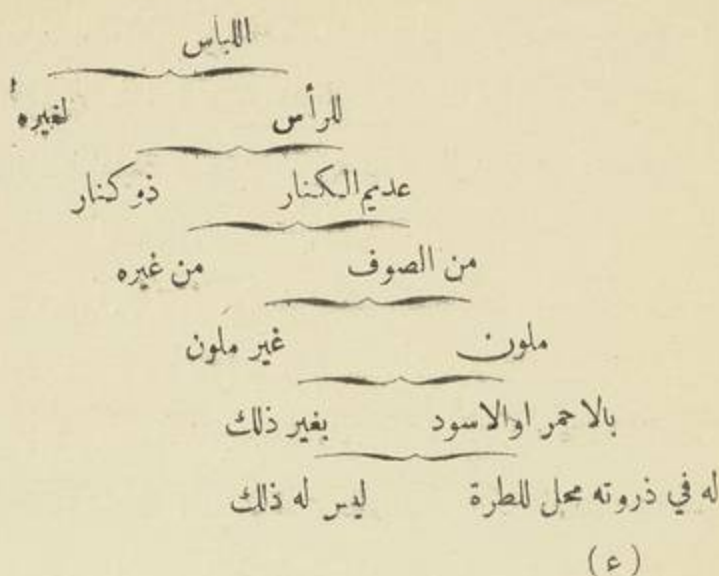 اللباس
للرأس لغيره
عديم الكنار ذو كنار
من الصوف من غيره
ملون غير ملون
بالاحمر او الاسود بغير ذلك
له في ذروته محل للطرة ليس له ذلك
(ء)